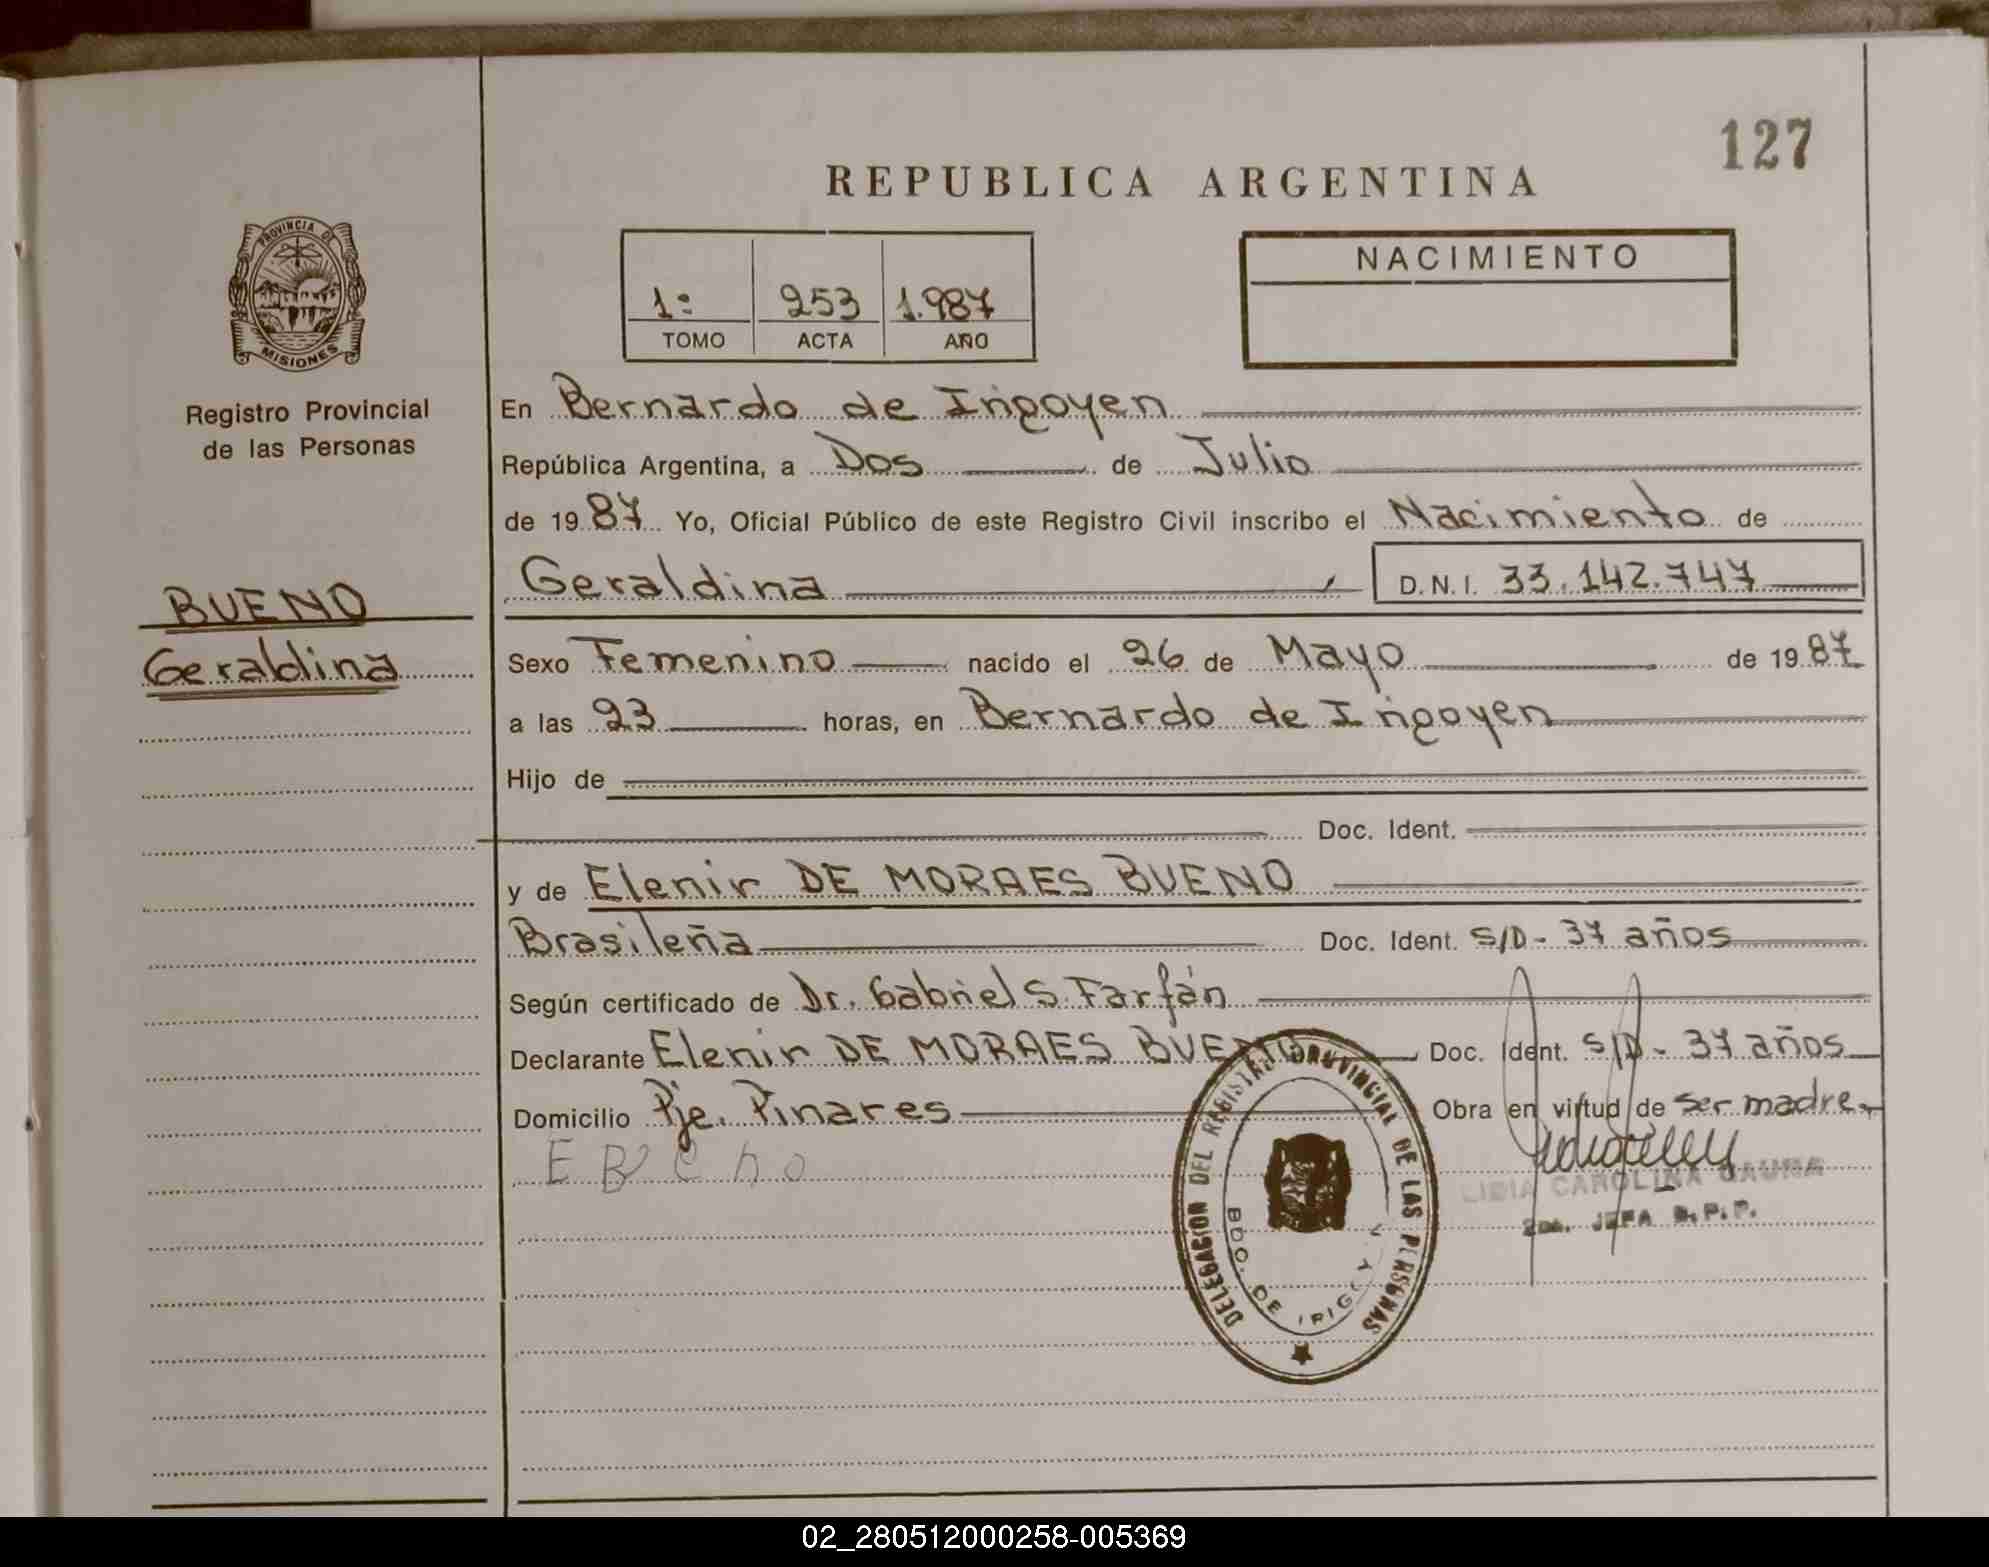 127
REPUBLICA ARGENTINA
PROVINCIA DE
MISIONES
Registro Provincial
de las Personas
1: 253 1.987
TOMO ACTA AÑO
NACIMIENTO
En Bernardo de Irigoyen
República Argentina, a Dos de Julio
de 19 87 Yo, Oficial Público de este Registro Civil inscribo el Nacimiento de
Geraldina D.N.I. 33.142.747
BUENO
Geraldina
Sexo Femenino nacido el 26 de Mayo de 19 87
a las 23 horas, en Bernardo de Irigoyen
Hijo de
Doc. Ident.
y de Elenir DE MORAES BUENO
Brasileña Doc. Ident. S/D - 37 años
Según certificado de Dr. Gabriel S. Farfán
Declarante Elenir DE MORAES BUENO Doc. Ident. S/D - 37 años
Domicilio Pje. Pinares Obra en virtud de ser madre
LIDIA CAROLINA
2da. JEFA R.P.P.
DELEGACION DEL REGISTRO PROVINCIAL DE LAS PERSONAS
BDO. DE IRIGOYEN
02_280512000258-005369